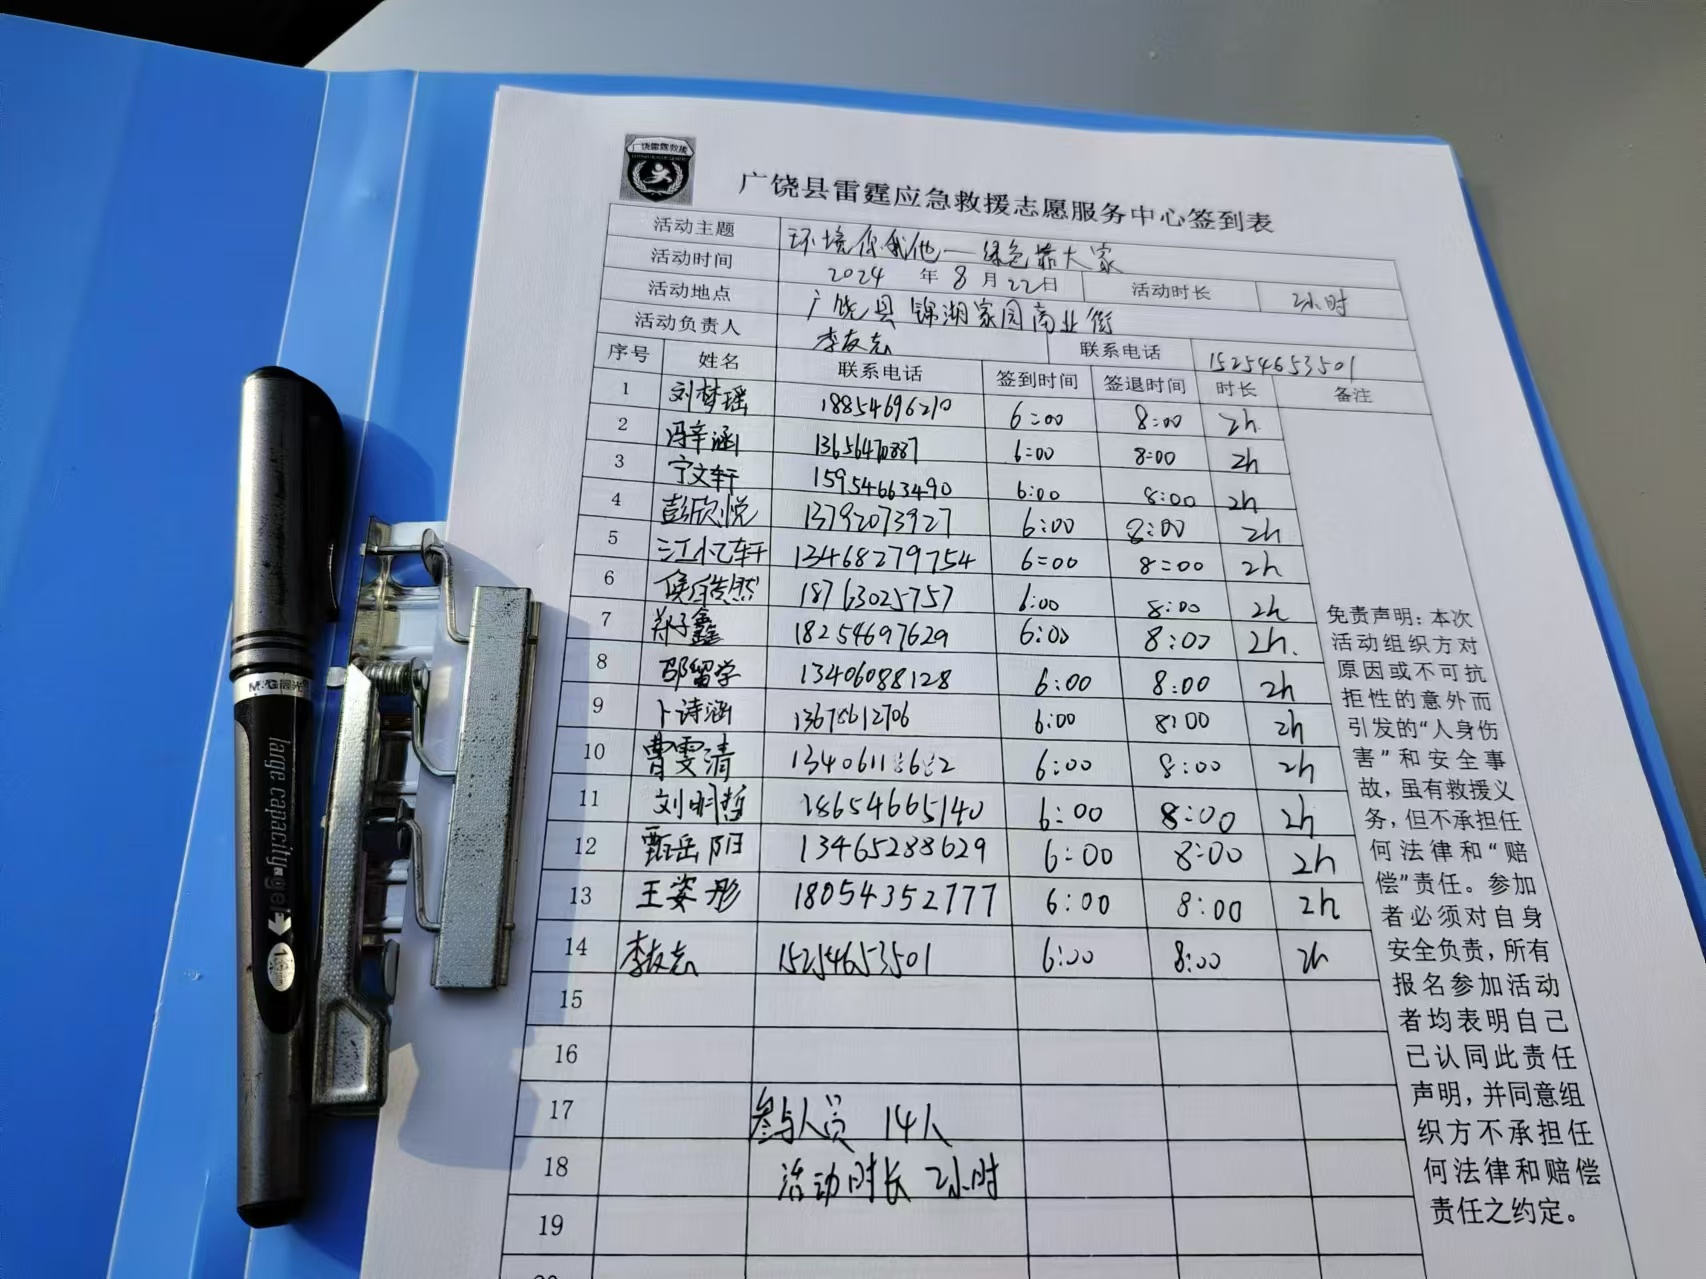 广饶雷霆救援
广饶县雷霆应急救援志愿服务中心签到表
活动主题 环境你我他——绿色靠大家
活动时间 2024 年 8 月 22日 活动时长 2小时
活动地点 广饶县锦湖家园商业街
活动负责人 李友志 联系电话 15254653501
序号 姓名 联系电话 签到时间 签退时间 时长 备注
1 刘梦瑶 18854696210 6:00 8:00 2h.
2 冯辛涵 6:00 8:00 2h
3 宁文轩 15954663490 6:00 8:00 2h
4 彭欣悦 13792073927 6:00 8:00 2h
5 13468279754 6:00 8:00 2h
6 18763025757 6:00 8:00 2h
7 郑子鑫 18254697629 6:00 8:00 2h.
8 邵留学 13406088128 6:00 8:00 2h
9 卜诗涵 6:00 8:00 2h
10 曹雯清 6:00 8:00 2h
11 刘明哲 18654665140 6:00 8:00 2h
12 甄岳阳 13465288629 6:00 8:00 2h
13 王姿彤 18054352777 6:00 8:00 2h
14 李友志 15254653501 6:00 8:00 2h
15
16
17 参与人员 14人
18 活动时长 2小时
19
免责声明：本次
活动组织方对
原因或不可抗
拒性的意外而
引发的“人身伤
害”和安全事
故，虽有救援义
务，但不承担任
何法律和“赔
偿”责任。参加
者必须对自身
安全负责，所有
报名参加活动
者均表明自己
已认同此责任
声明，并同意组
织方不承担任
何法律和赔偿
责任之约定。
M&G晨光
large capacity gel